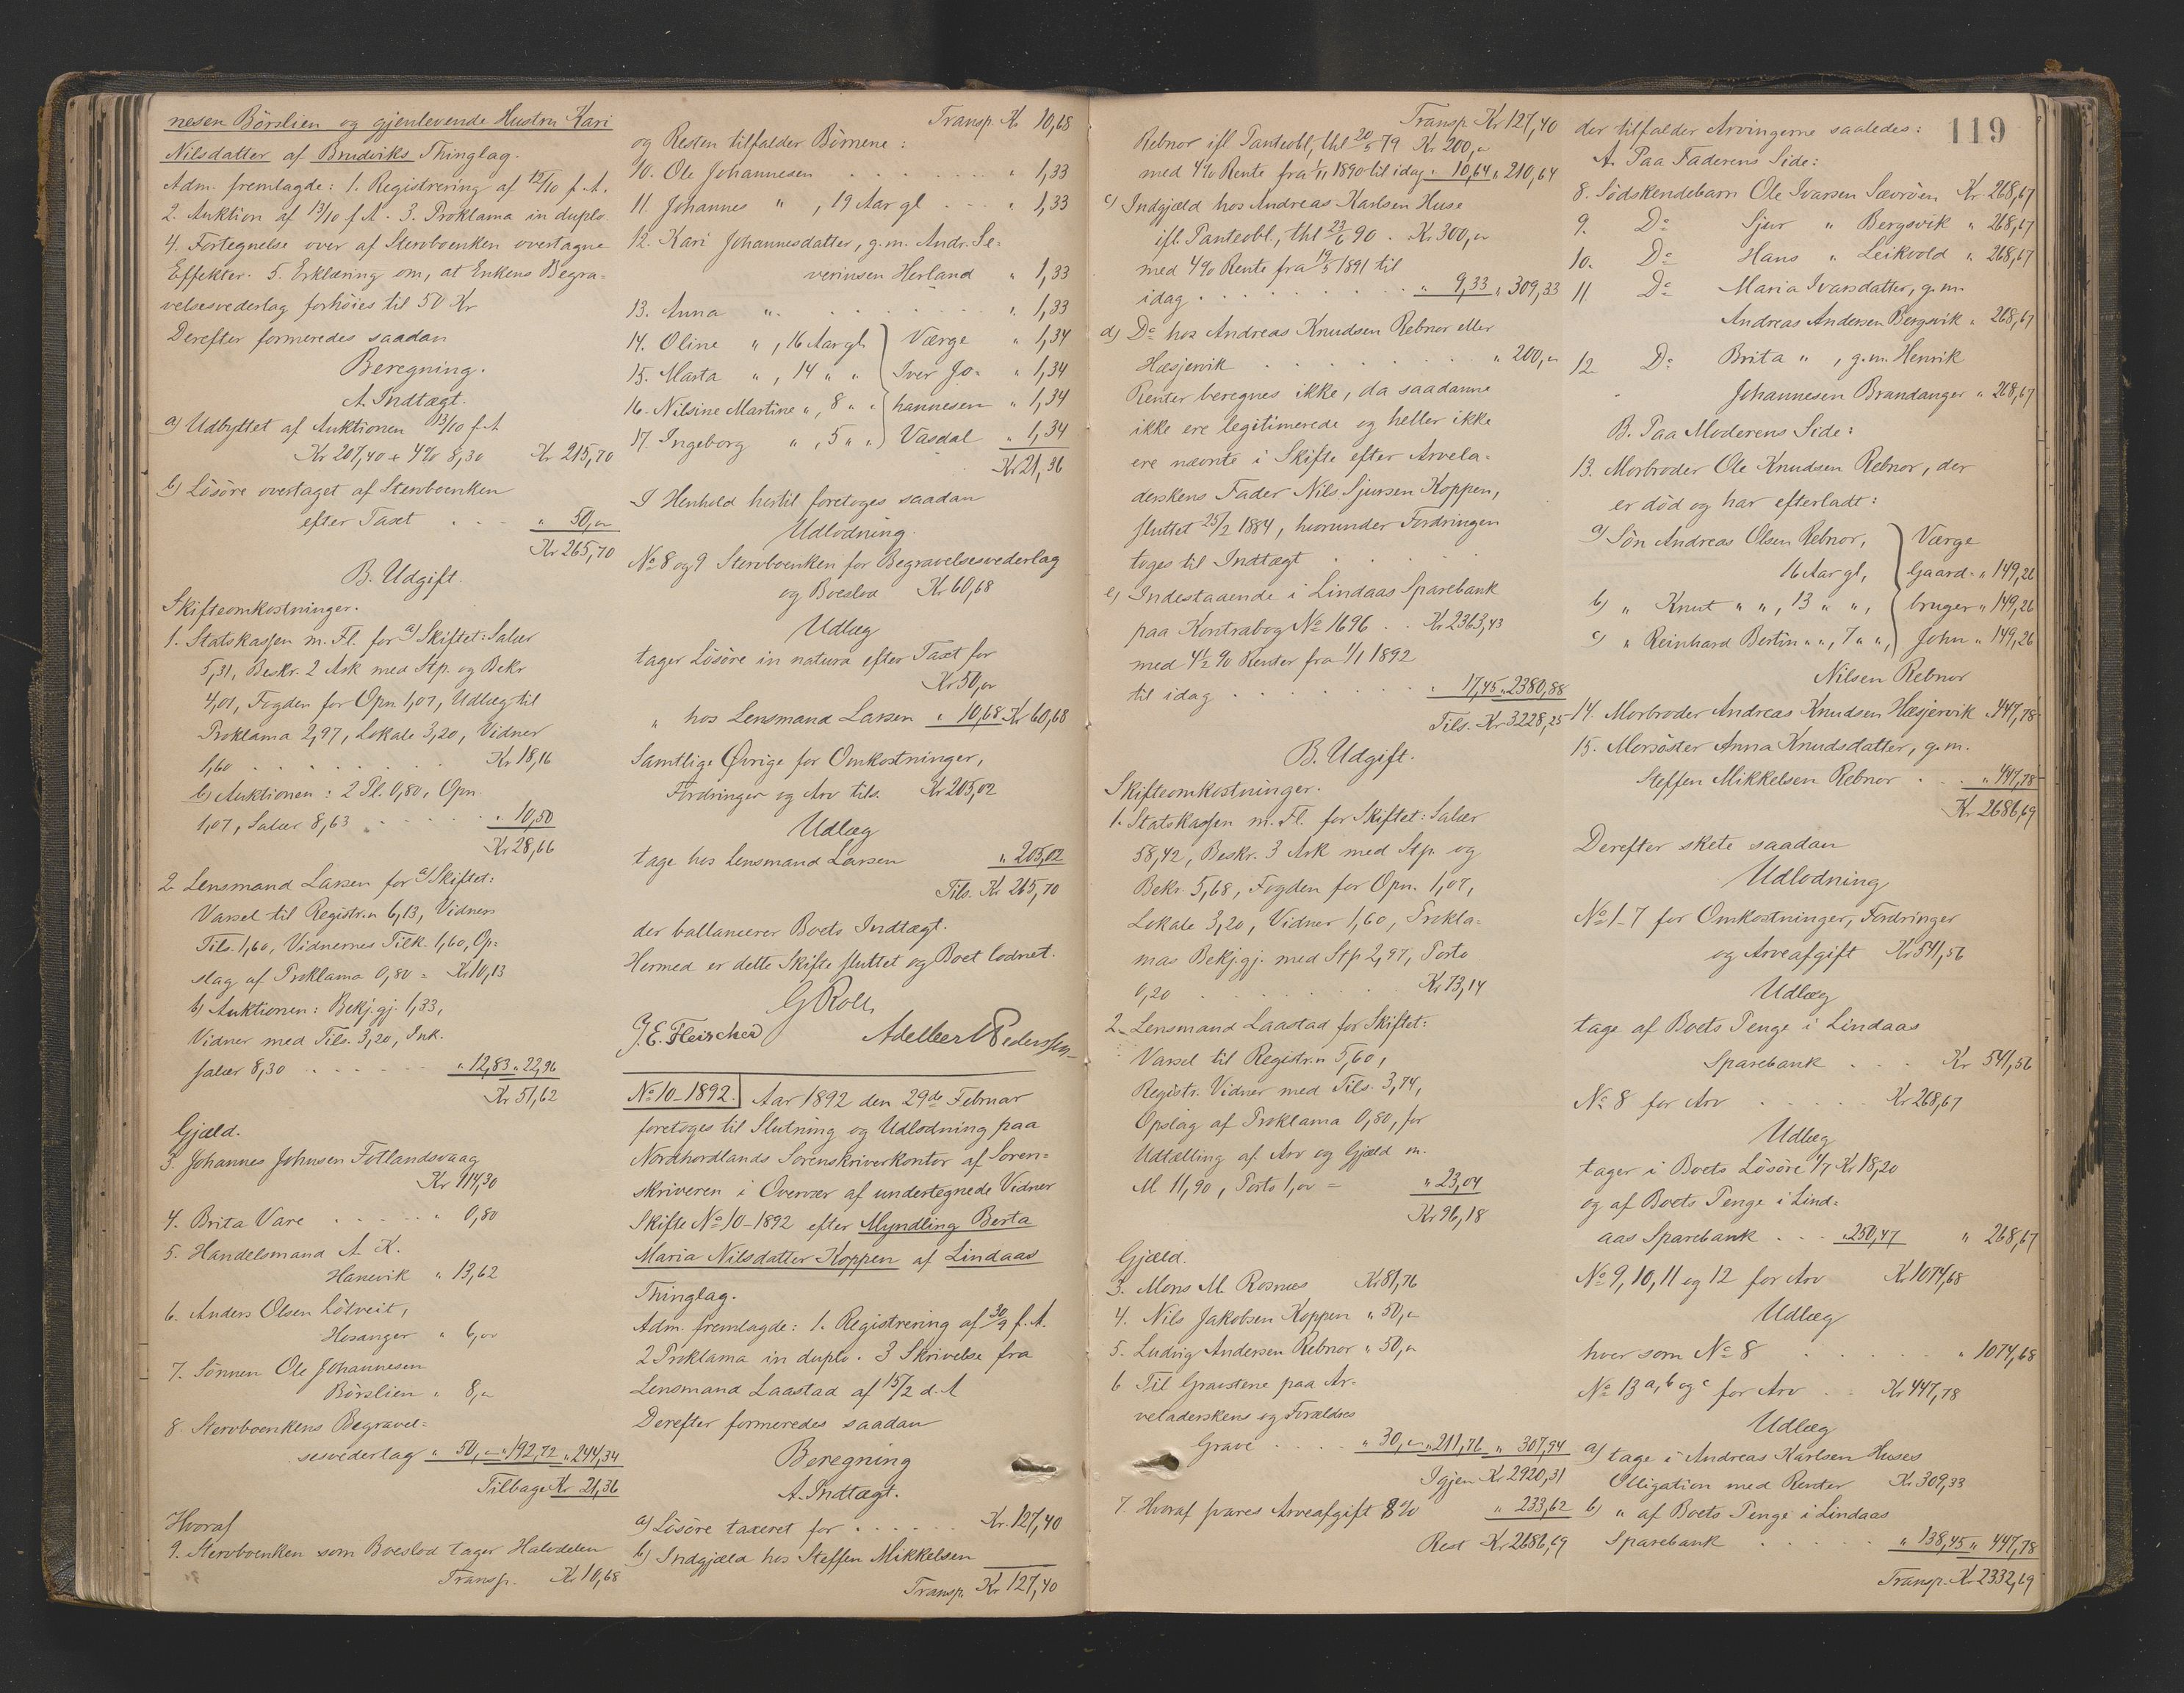 nesen Börslien og gjenlevende Hustru Kari
Nilsdatter af Bruviks Thinglag.
Adm. fremlagde: 1. Registrering af 12/10 f. A.
2. Auktion af 13/10 f. A. 3. Proklama in duplo
4. Fortegnelse over af Stervboenken overtagne
Effekter. 5. Erklæring om, at Enkens Begra-
velsesvederlag forhöies til 50 Kr
Derefter formeredes saadan
Beregning.
A. Indtægt.
a) Udbyttet af Auktionen 13/10 f. A
Kr 207,40 + 4% 8,30 Kr 215,70
b) Lösöre overtaget af Stervboenken
efter Taxt . . . " 50,00
Kr 265,70
B. Udgift.
Skifteomkostninger.
1. Statskassen m. Fl. for a) Skiftet: Salær
5,31, Beskr. 2 Ark med Stp. og Bekr
4,01, Fogden for Opn 1,07, Udlæg til
Proklama 2,97, Lokale 3,20, Vidner
1,60 . . . . . . Kr 18,16
b) Auktionen: 2 Pl. 0,80, Opn.
1,07, Salær 8,63 . . . . . " 10,50
Kr 28,66
2 Lensmand Larsen for a) Skiftet:
Varsel til Registr.n 6,13, Vidners
Tils. 1,60, Vidnernes Tilk. 1,60, Op-
slag af Proklama 0,80 = Kr 10,13
b) Auktionen: Bekj.gj. 1,33,
Vidner med Tils. 3,20, Ink.
salær 8,30 . . . . . " 12,83 " 22,96
Kr 51,62
Gjæld.
3. Johannes Johnsen Fotlandsvaag
Kr 114,30
4. Brita Vare . . . . . " 0,80
5. Handelsmand A. K.
Hanevik " 13,62
6. Anders Olsen Lötveit,
Hosanger " 6,00
7. Sönnen Ole Johannesen
Börslien " 8,00
8. Stervboenkens Begravel-
sesvederlag " 50,00 " 192,72 " 244,34
Tilbage Kr 21,36
Hvoraf
9. Stervboenken som Boeslod tager Halvdelen
Transp. Kr 10,68
Transp. Kr 10,68
og Resten tilfalder Börnene:
10. Ole Johannesen . . . . . . . " 1,33
11. Johannes " , 19 Aar gl . . . " 1,33
12. Kari Johannesdatter, g.m. Andr. Se-
verinsen Herland " 1,33
13. Anna " . . . . . . " 1,33
14. Oline " , 16 Aar gl. Værge " 1,34
15. Marta " , 14 " " Iver Jo- " 1,34
16. Nilsine Martine " , 8 " " hannesen " 1,34
17. Ingeborg " , 5 " " Vasdal " 1,34
Kr 21,36
I Henhold hertil foretoges saadan
Udlodning.
No 8 og 9 Stervboenken for Begravelsesvederlag
og Boeslod Kr 60,68
Udlæg
tager Lösöre in natura efter Taxt for
Kr 50,00
" hos Lensmand Larsen " 10,68 Kr 60,68
Samtlige Øvrige for Omkostninger,
Fordringer og Arv tils. Kr 205,02
Udlæg
tage hos Lensmand Larsen " 205,02
Tils. Kr 265,70
der ballancerer Boets Indtægt.
Hermed er dette Skifte sluttet og Boet lodnet.
G Roll
J. E. Fleischer Adelbert Pederssen
No 10-1892. Aar 1892 den 29de Februar
foretoges til Slutning og Udlodning paa
Nordhordlands Sorenskriverkontor af Soren-
skriveren i Overvær af undertegnede Vidner
Skifte No 10-1892 efter Myndling Berta
Maria Nilsdatter Koppen af Lindaas
Thinglag.
Adm. fremlagde: 1. Registrering af 30/9 f. A.
2 Proklama in duplo. 3 Skrivelse fra
Lensmand Laastad af 15/2 d. A
Derefter formeredes saadan
Beregning
A. Indtægt.
a) Lösöre taxeret for . . . . . . Kr. 127,40
b) Indgjæld hos Steffen Mikkelsen
Transp. Kr 127,40
Transp. Kr 127,40
Rebnor ifl. Panteobl., thl 20/5 79 Kr 200,00
med 4% Rente fra 1/11 1890 til idag " 10,64 " 210,64
c) Indgjæld hos Andreas Karlsen Huse
ifl. Panteobl., thl 23/6 90 . Kr 300,00
med 4% Rente fra 19/5 1891 til
idag . . . . . . . . . " 9,33 " 309,33
d) Do hos Andreas Knudsen Rebnor eller
Hæsjervik . . . . . . . . " 200,00
Renter beregnes ikke, da saadanne
ikke ere legitimerede og heller ikke
ere nævnte i Skifte efter Arvela-
derskens Fader Nils Sjursen Koppen,
sluttet 25/2 1884, hvorunder Fordringen
toges til Indtægt . . . .
e) Indestaaende i Lindaas Sparebank
paa Kontrabog No 1696 . . Kr 2363,43
med 4½ % Renter fra 1/1 1892
til idag . . . . . . . . " 17,45 " 2380,88
Tils. Kr 3228,25
B. Udgift.
Skifteomkostninger.
1. Statskassen m. Fl. for Skiftet: Salær
58,42, Beskr. 3 Ark med Stp. og
Bekr. 5,68, Fogden for Opn. 1,07,
Lokale 3,20, Vidner 1,60, Prokla-
mas Bekj.gj. med Stp 2,97, Porto
0,20 . . . . . . . Kr 73,14
2. Lensmand Laastad for Skiftet:
Varsel til Registr.n 5,60,
Registr. Vidner med Tils. 3,74,
Opslag af Proklama 0,80, for
Udtælling af Arv og Gjæld m.
M 11,90, Porto 1,00 = " 23,04
Kr 96,18
Gjæld.
3. Mons M. Rosnæs Kr 81,76
4. Nils Jakobsen Koppen " 50,00
5. Ludvig Andersen Rebnor " 50,00
6 Til Gravstene paa Ar-
veladerskens og Forældres
Grave . . . . " 30,00 " 211,76 " 307,94
Igjen Kr 2920,31
7. Hvoraf svares Arveafgift 8% " 233,62
Rest Kr 2686,69
119
der tilfalder Arvingerne saaledes:
A. Paa Faderens Side:
8. Södskendebarn Ole Ivarsen Sævröen Kr 268,67
9. Do Sjur " Bergsvik " 268,67
10. Do Hans " Leikvold " 268,67
11 Do Maria Ivarsdatter, g.m.
Andreas Andersen Bergsvik " 268,67
12 Do Brita " , g.m. Henrik
Johannesen Brandanger " 268,67
B. Paa Moderens Side:
13. Morbroder Ole Knudsen Rebnor, der
er död og har efterladt:
a) Sön Andreas Olsen Rebnor, Værge
16 Aar gl, Gaard- " 149,26
b) " Knut " " , 13 " " , bruger " 149,26
c) " Reinhard Bertin " " , 7 " " , John " 149,26
Nilsen Rebnor
14. Morbroder Andreas Knudsen Hæsjervik " 447,78
15. Morsöster Anna Knudsdatter, g.m.
Steffen Mikkelsen Rebnor . . . " 447,78
Kr. 2686,69
Derefter skete saadan
Udlodning
No 1-7 for Omkostninger, Fordringer
og Arveafgift Kr 541,56
Udlæg
tage af Boets Penge i Lindaas
Sparebank . . . Kr 541,56
No 8 for Arv . . . . . Kr 268,67
Udlæg
tager i Boets Lösöre 1/7 Kr 18,20
og af Boets Penge i Lind-
aas Sparebank . . . " 250,47 " 268,67
No 9, 10, 11 og 12 for Arv Kr 1074,68
Udlæg
hver som No 8 . . . . . . " 1074,68
No 13 a, b og c for Arv . . Kr 447,78
Udlæg
a) tage i Andreas Karlsen Huses
Obligation med Renter Kr 309,33
b) " af Boets Penge i Lindaas
Sparebank . . . . . " 138,45 " 447,78
Transp. Kr 2332,69